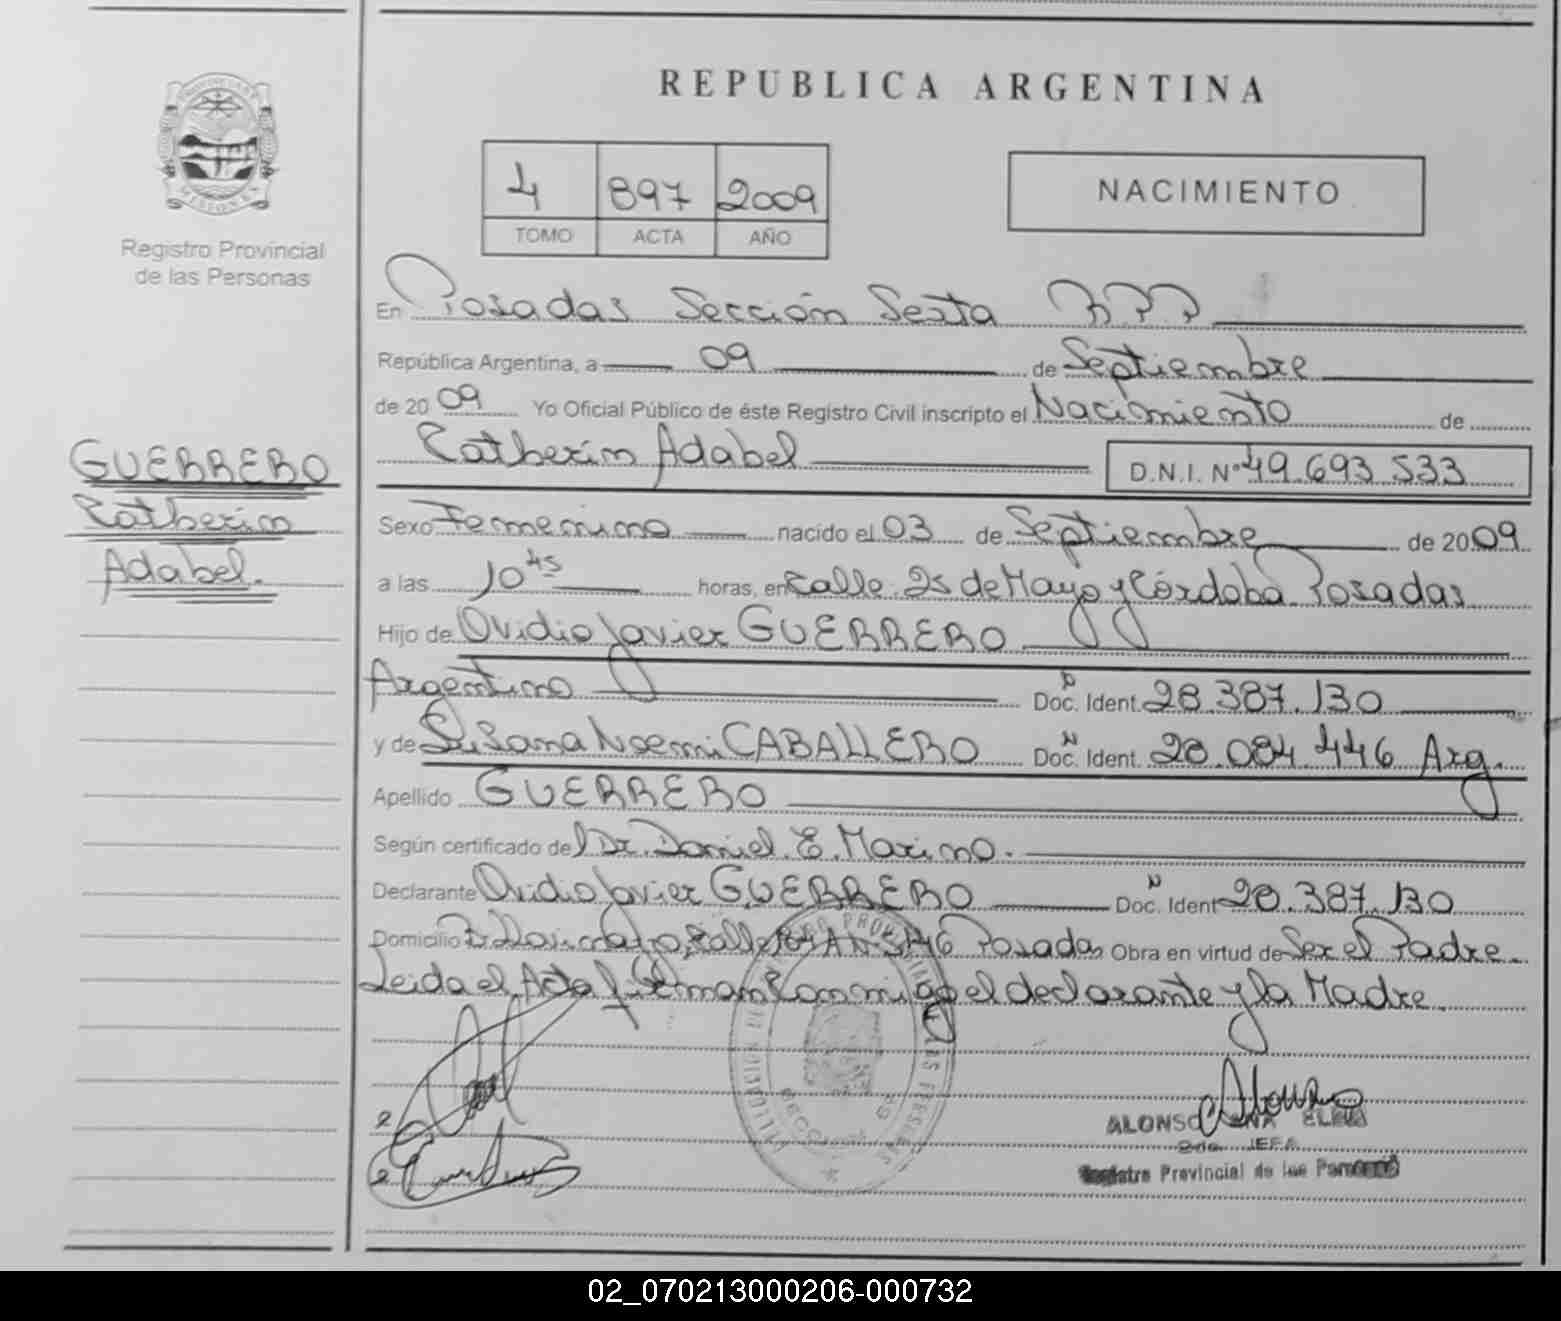 REPUBLICA ARGENTINA
PROVINCIA DE
MISIONES
Registro Provincial
de las Personas
4 897 2009
TOMO ACTA AÑO
NACIMIENTO
En Posadas Sección Sexta R.P.P
República Argentina, a 09 de Septiembre
de 20 09 Yo Oficial Público de éste Registro Civil inscripto el Nacimiento de
Catherin Adabel D.N.I. Nº 49.693.533
GUERRERO
Catherin
Adabel.
Sexo Femenino nacido el 03 de Septiembre de 20 09
a las 10 45 horas, en Calle 25 de Mayo y Córdoba Posadas
Hijo de Ovidio Javier GUERRERO
Argentino Doc. Ident. 28.387.130
y de Susana Noemi CABALLERO Doc. Ident. 28.084.446 Arg.
Apellido GUERRERO
Según certificado del Dr. Daniel. E. Marino.
Declarante Ovidio Javier GUERRERO Doc. Ident 28.387.130
Domicilio Posadas Obra en virtud de Ser el Padre.
Leida el Acta firman Conmigo el declarante y la Madre.
ALONSO ELENA
2da. JEFA
Registro Provincial de las Personas
SECCION 6ª
02_070213000206-000732